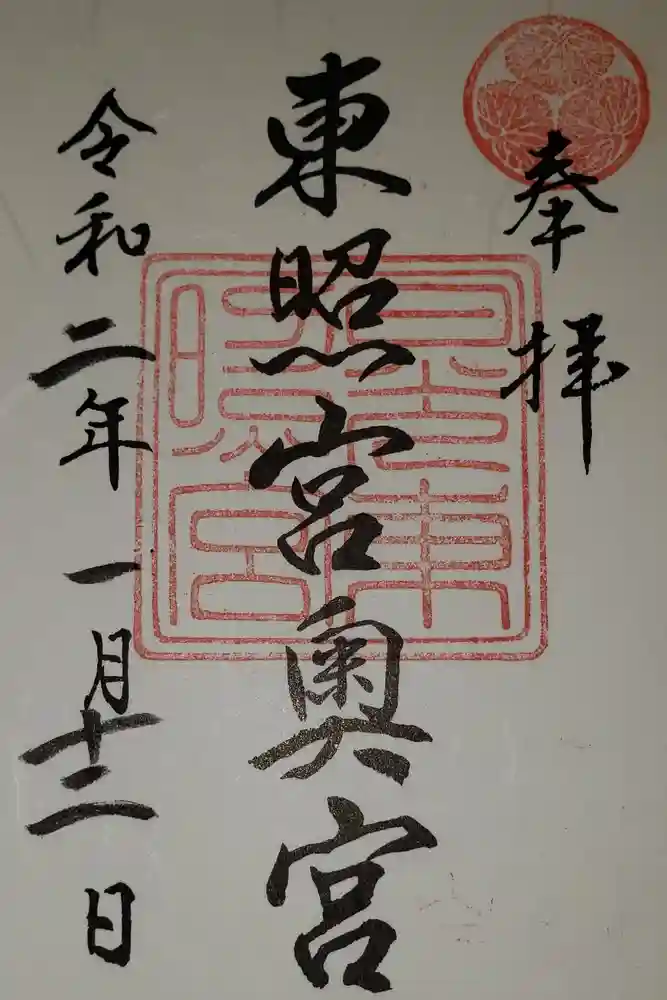 奉拝
東照宮奥宮
令和二年一月十二日